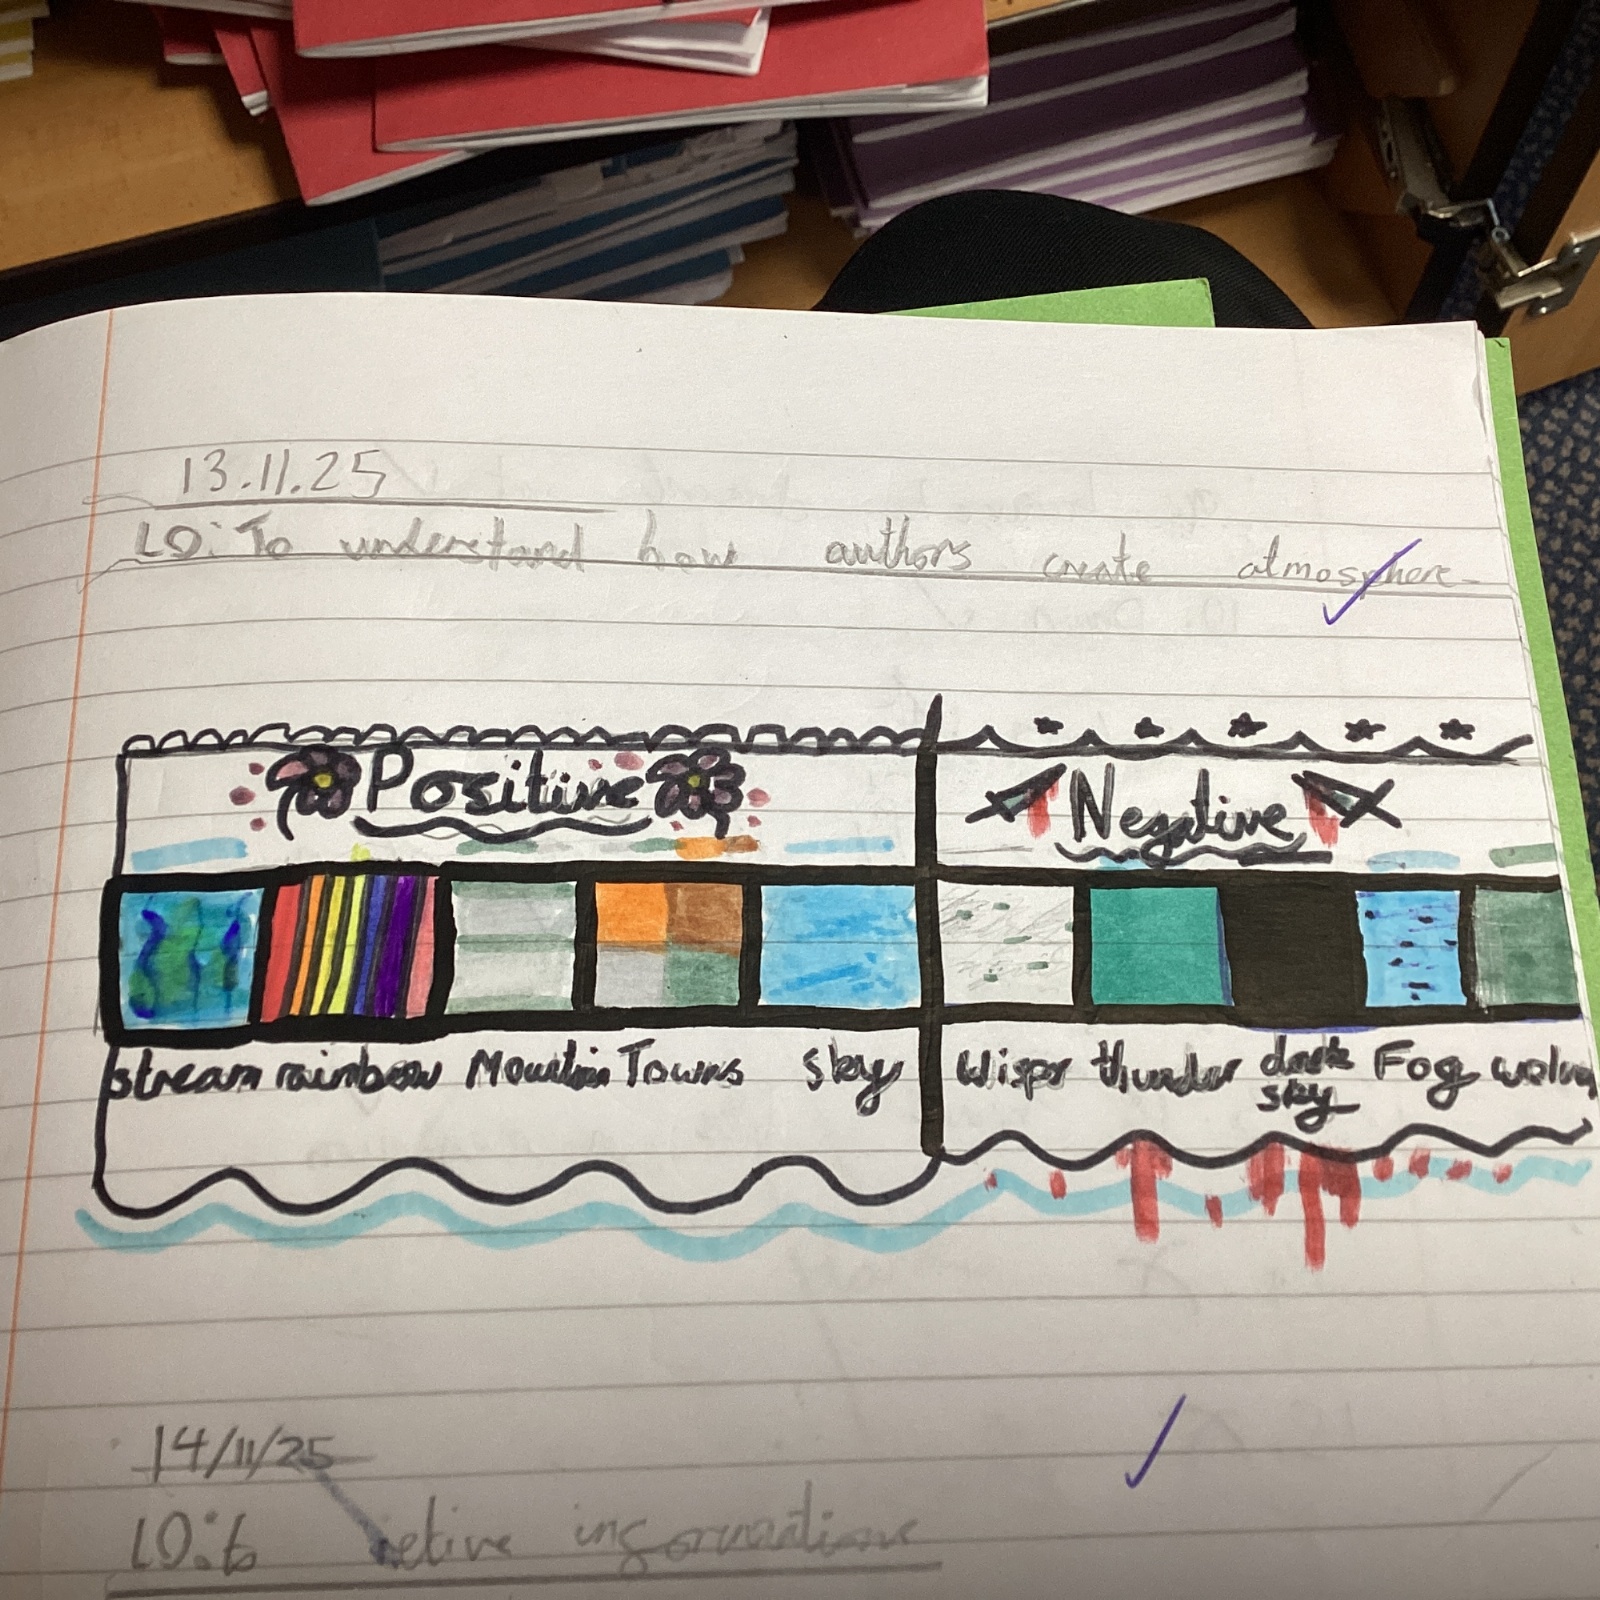 13.11.25
LO: To understand how authors create atmosphere.
Positive Negative
stream rainbow Mountin Towns sky Wispr thunder dark sky Fog
14/11/25
LO: to retive informatione